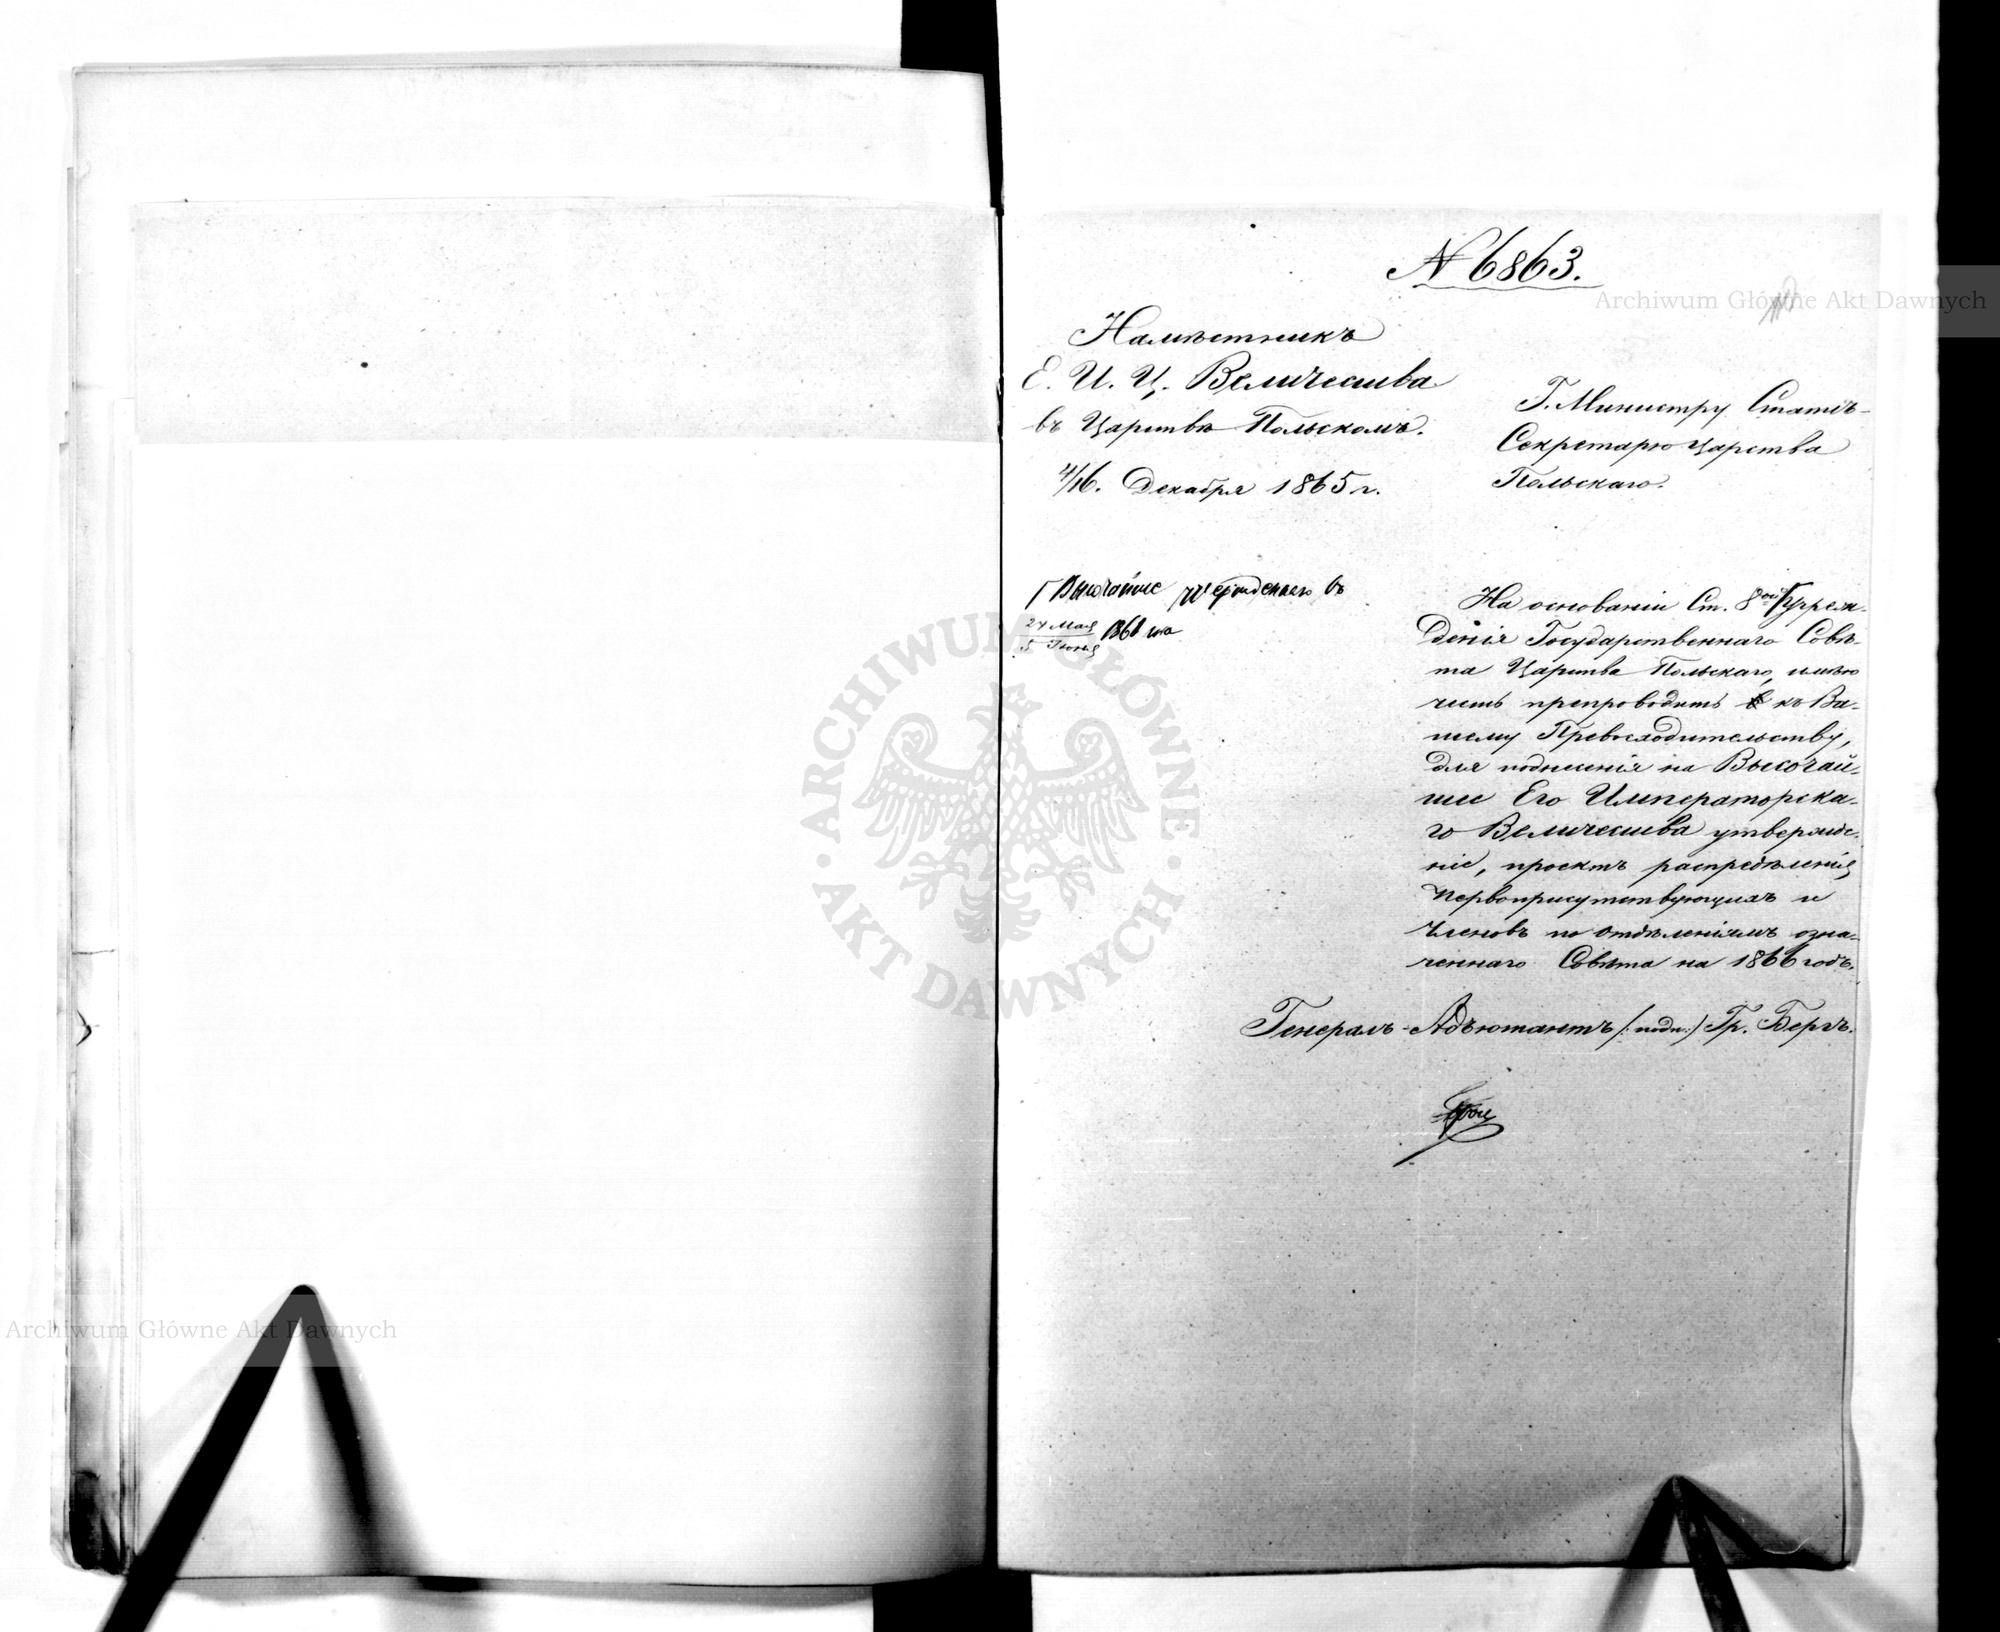 № 6863.
Archiwum Główne Akt Dawnych
Намѣстникъ
Е. И. Ц. Величества
въ Царствѣ Польскомъ.
4/16. Декабря 1865 г.
Г. Министру Статсъ-
Секретарю Царства
Польскаго.
Высочайше учрежденнаго въ
24 Мая
5 Июня
1861 на
На основаніи Ст. 8ой Учреж-
денія Государственнаго Совѣ-
та Царства Польскаго, имѣю
честь препроводить къ Ва-
шему Превосходительству,
для поднесенія на Высочай-
шее Его Императорска-
го Величества утвержде-
ніе, проектъ распредѣленія
Первоприсутствующихъ и
Членовъ по отдѣленіямъ озна-
ченнаго Совѣта на 1866 годъ.
Генералъ-Адъютантъ /:подп:/ Гр. Бергъ.
ARCHIWUM GŁÓWNE · AKT DAWNYCH ·
Archiwum Główne Akt Dawnych